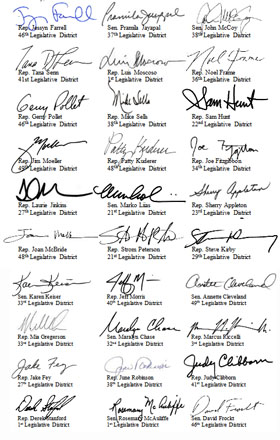 Rep. Jessyn Farrell
46th Legislative District
Sen. Pramila Jayapal
37th Legislative District
Sen. John McCoy
38th Legislative District
Rep. Tana Senn
41st Legislative District
Rep. Luis Moscoso
1st Legislative District
Rep. Noel Frame
36th Legislative District
Gerry Pollet
Mike Sells
Sam Hunt
Rep. Gerry Pollet
46th Legislative District
Rep. Mike Sells
38th Legislative District
Rep. Sam Hunt
22nd Legislative District
Rep. Jim Moeller
49th Legislative District
Rep. Patty Kuderer
48th Legislative District
Rep. Joe Fitzgibbon
34th Legislative District
Sherry Appleton
Rep. Laurie Jinkins
27th Legislative District
Sen. Marko Liias
21st Legislative District
Rep. Sherry Appleton
23rd Legislative District
Rep. Joan McBride
48th Legislative District
Rep. Strom Peterson
21st Legislative District
Rep. Steve Kirby
29th Legislative District
Annette Cleveland
Sen. Karen Keiser
33rd Legislative District
Rep. Jeff Morris
40th Legislative District
Sen. Annette Cleveland
49th Legislative District
Marilyn Chase
Rep. Mia Gregerson
33rd Legislative District
Sen. Maralyn Chase
32nd Legislative District
Rep. Marcus Riccelli
3rd Legislative District
Jake Fey
Judy Clibborn
Rep. Jake Fey
27th Legislative District
Rep. June Robinson
38th Legislative District
Rep. Judy Clibborn
41st Legislative District
Rep. Derek Stanford
1st Legislative District
Sen. Rosemary McAuliffe
1st Legislative District
Sen. David Frockt
46th Legislative District